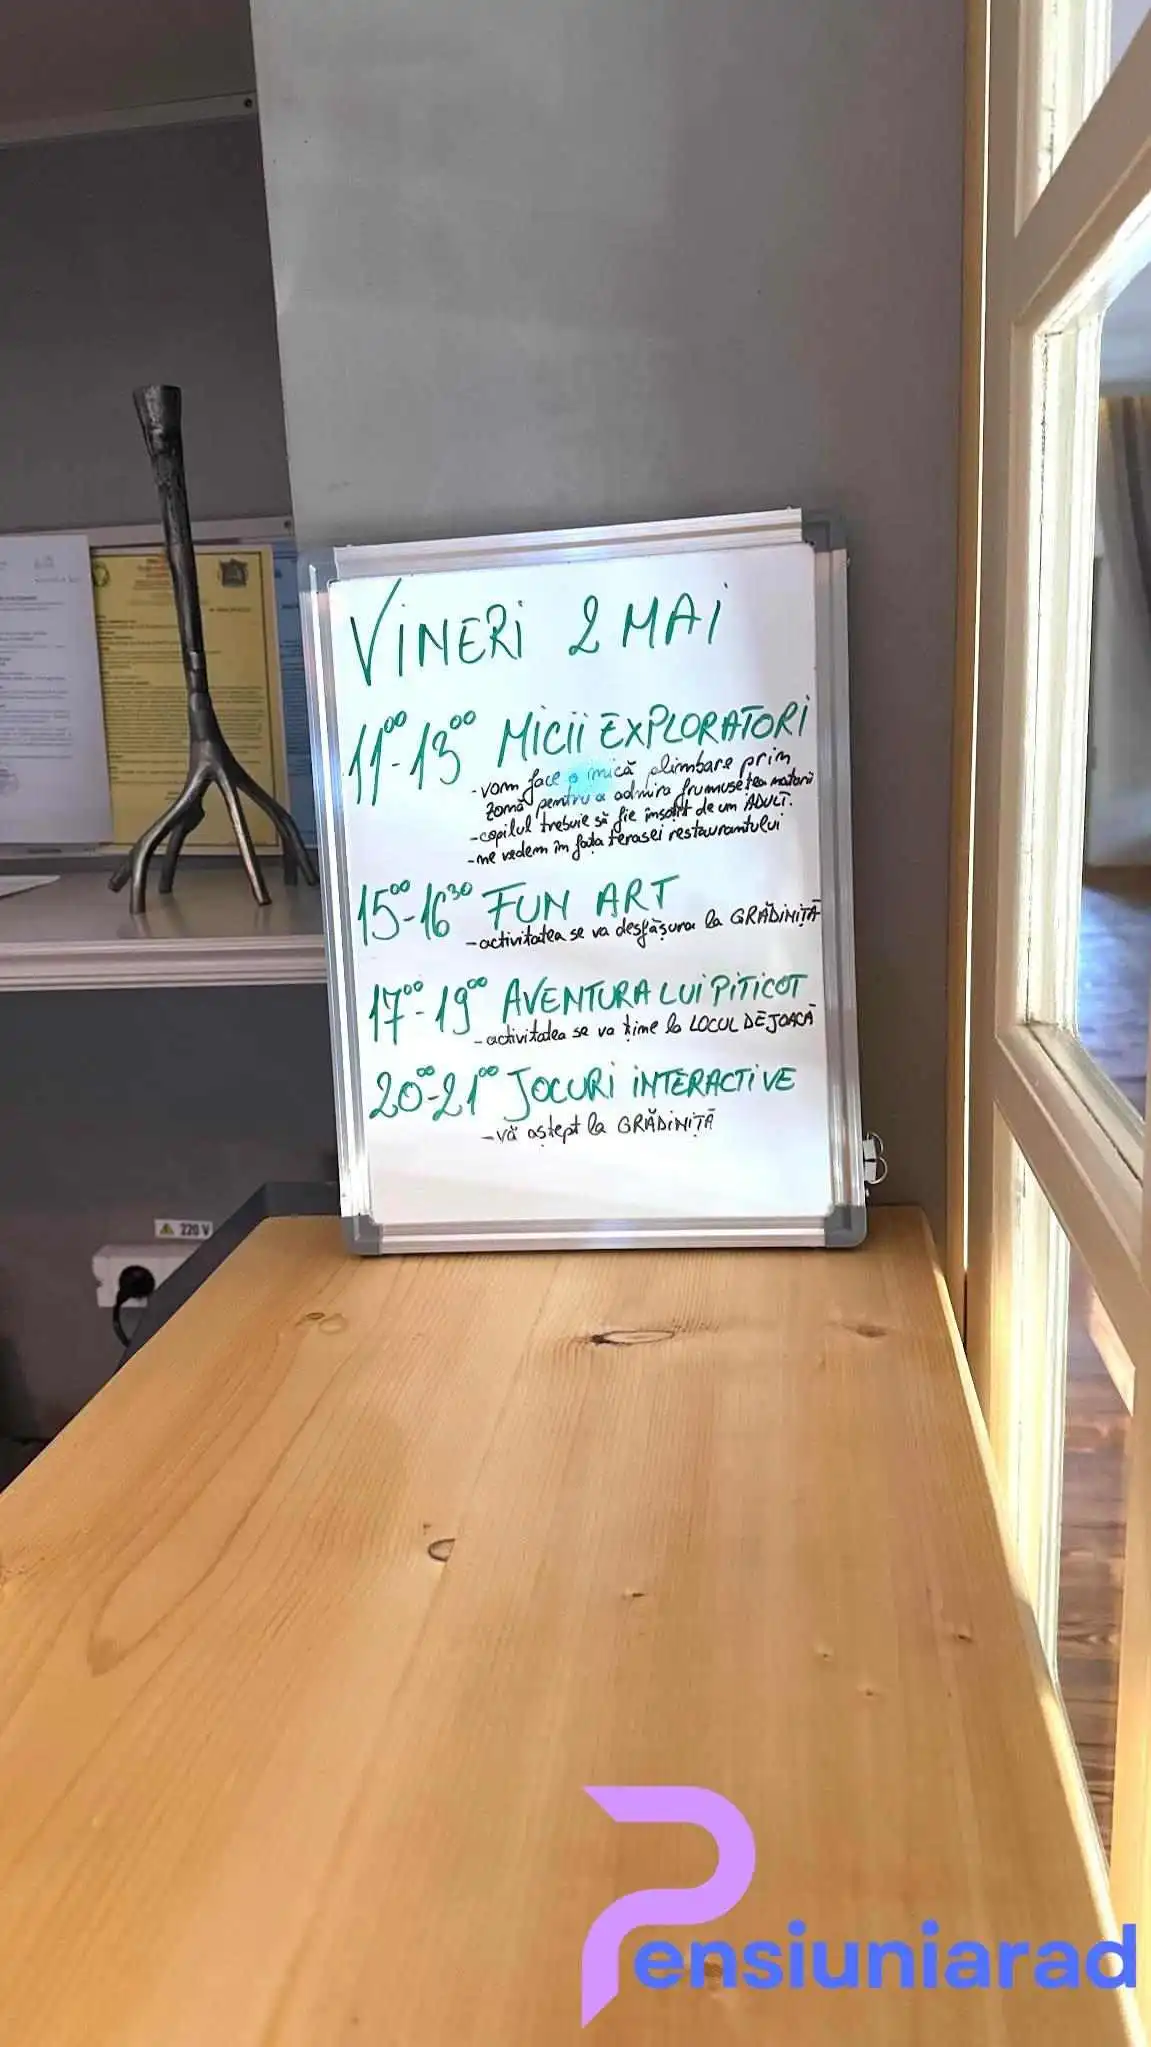 VINERI 2 MAI
11⁰⁰-13⁰⁰ MICII EXPLORATORI
-vom face o mică plimbare prin
zonă pentru a admira frumusețea naturii
-copilul trebuie să fie însoțit de un ADULT.
-ne vedem în fața terasei restaurantului
15⁰⁰-16³⁰ FUN ART
-activitatea se va desfășura la GRĂDINIȚĂ
17⁰⁰-19⁰⁰ AVENTURA LUI PITICOT
-activitatea se va ține la LOCUL DE JOACĂ
20⁰⁰-21⁰⁰ JOCURI INTERACTIVE
-vă aștept la GRĂDINIȚĂ
220 V
Pensiuniarad